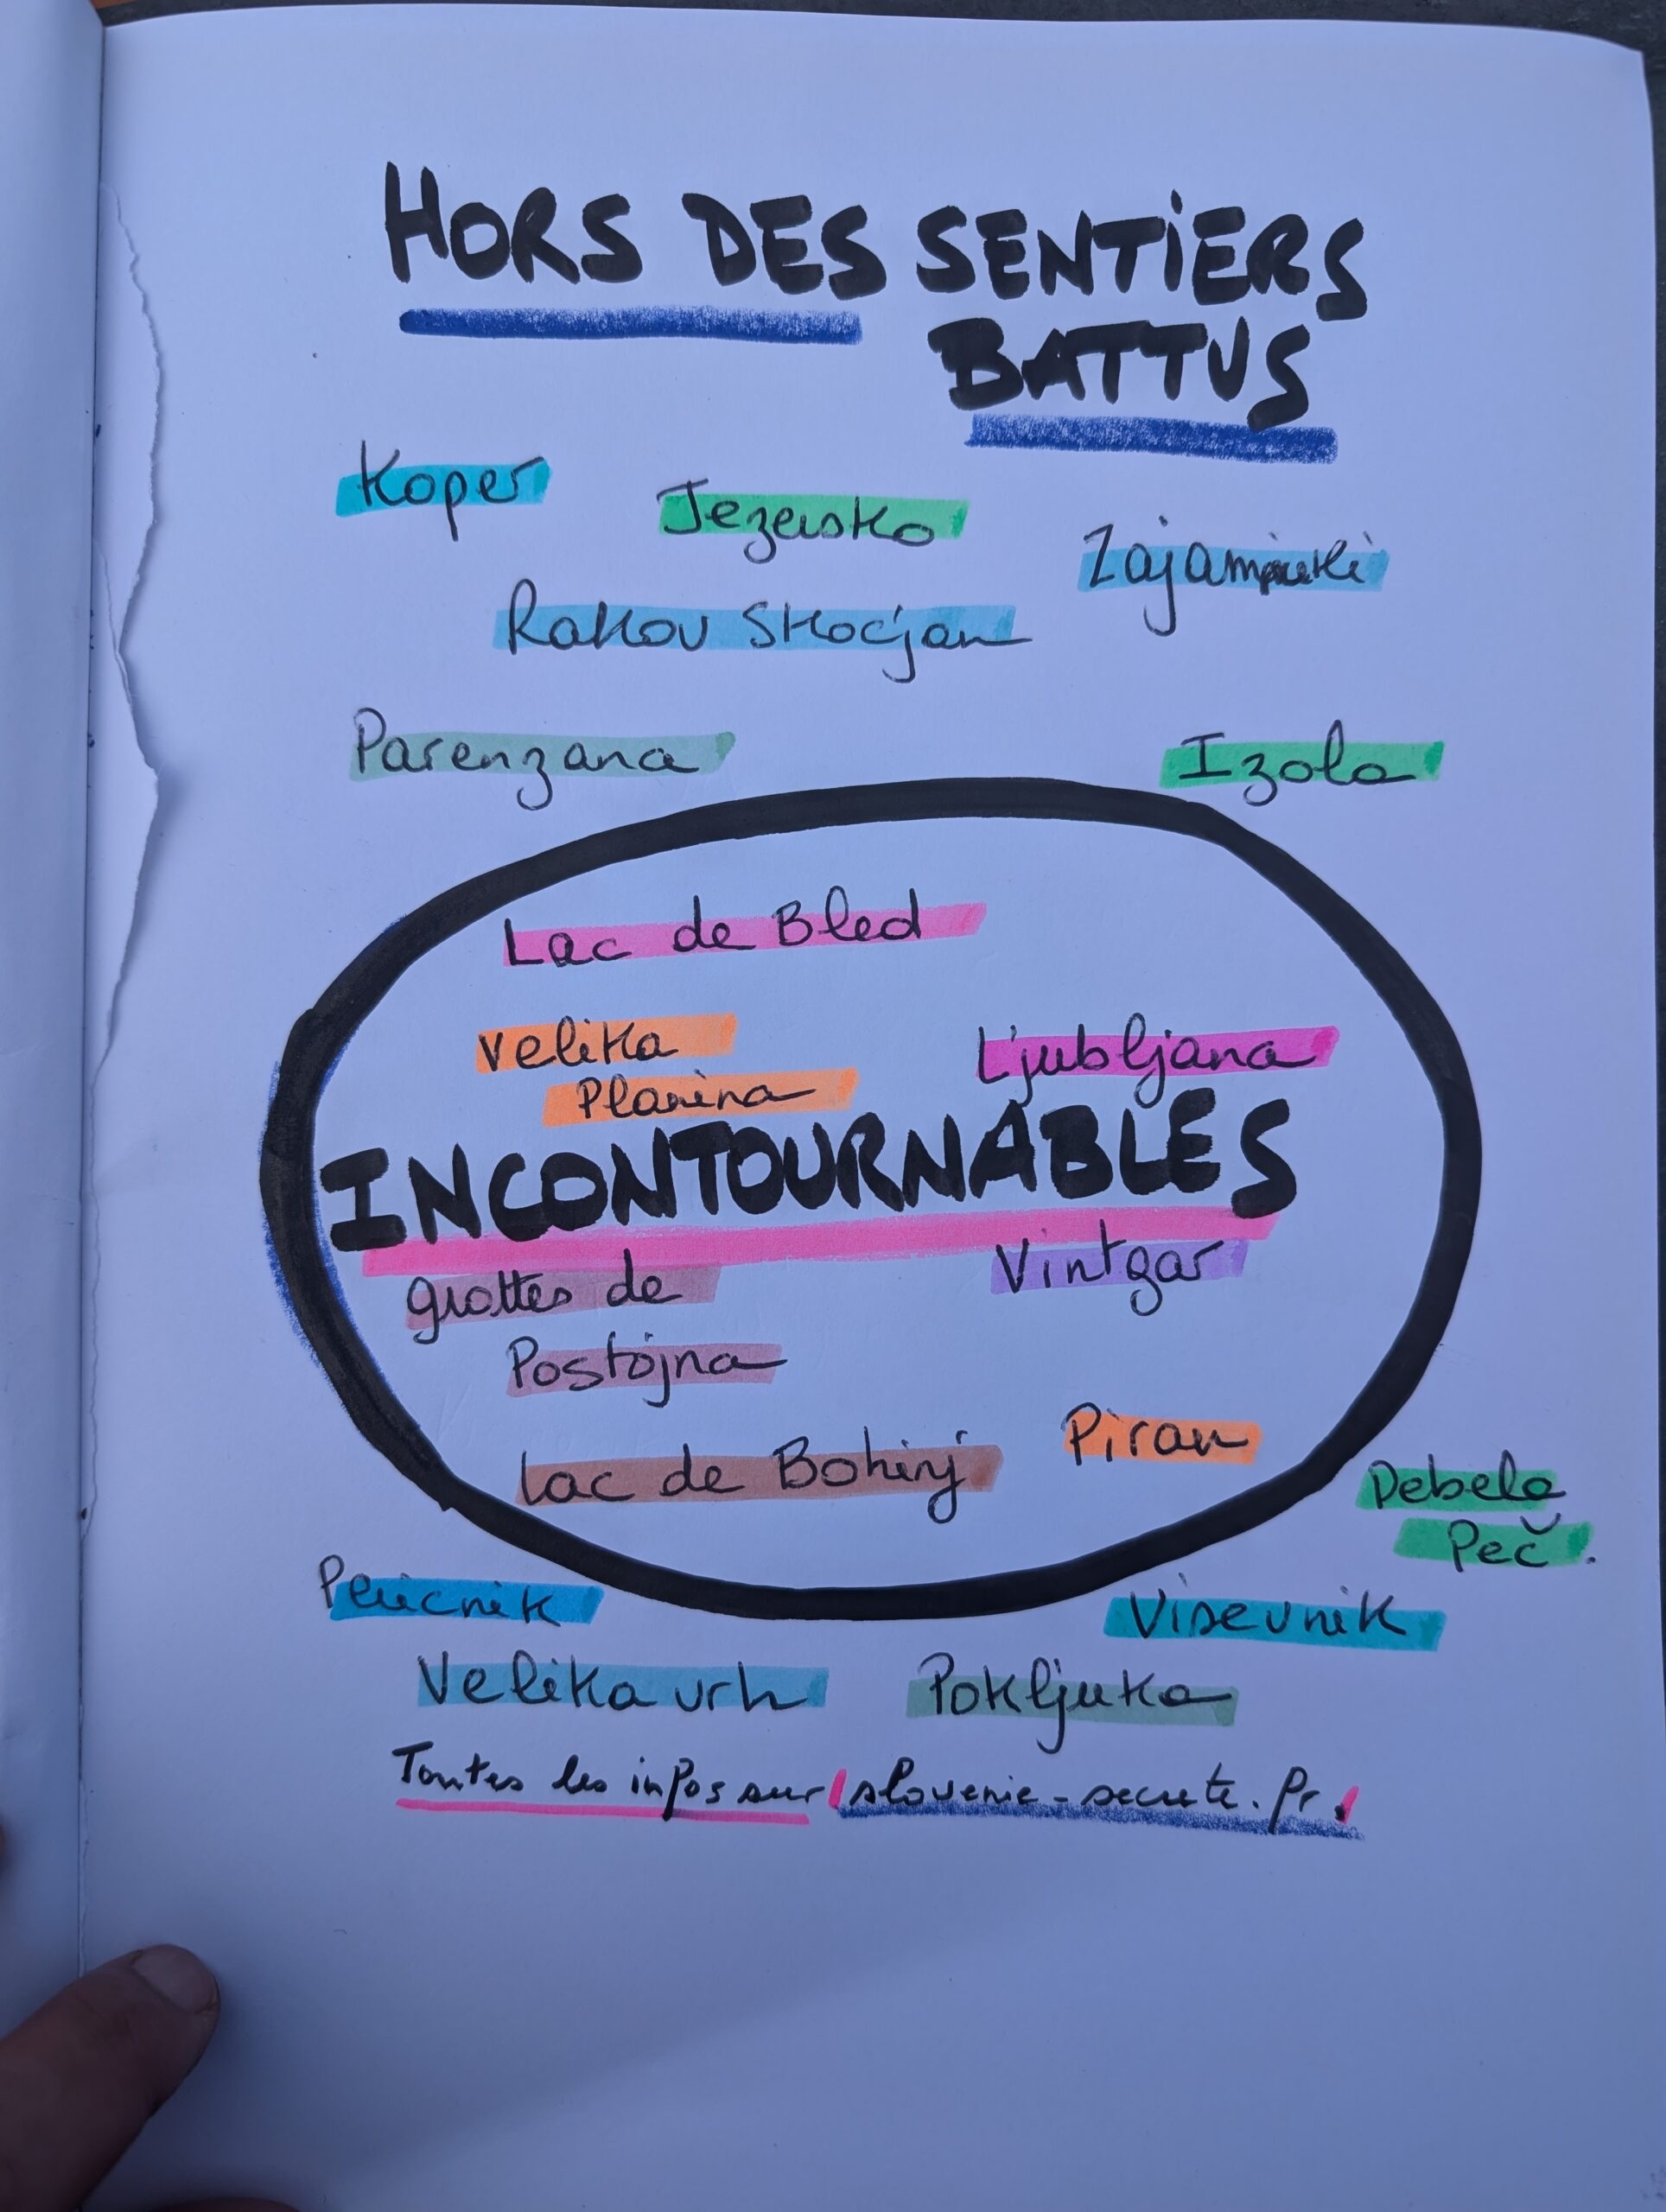 HORS DES SENTIERS
BATTUS
Koper
Jezersko
Rakov Skocjan
Parenzana
Izola
Lac de Bled
Velika
Planina
Ljubljana
INCONTOURNABLES
grottes de
Postojna
Vintgar
Lac de Bohinj
Piran
Debela
Peč.
Pericnik
Visevnik
Velika vrh
Pokljuka
Toutes les infos sur slovenie-secrete.fr